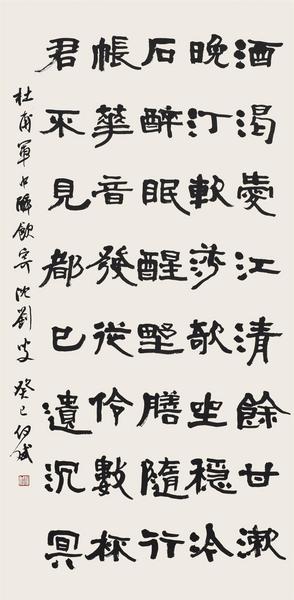 酒渴愛江清餘甘漱
晚汀軟莎欹坐穩冷
石醉眠醒野膳隨行
帳華音發從伶數杯
君不見都已遣沉冥
杜甫軍中醉飲寄沈劉叟 癸巳